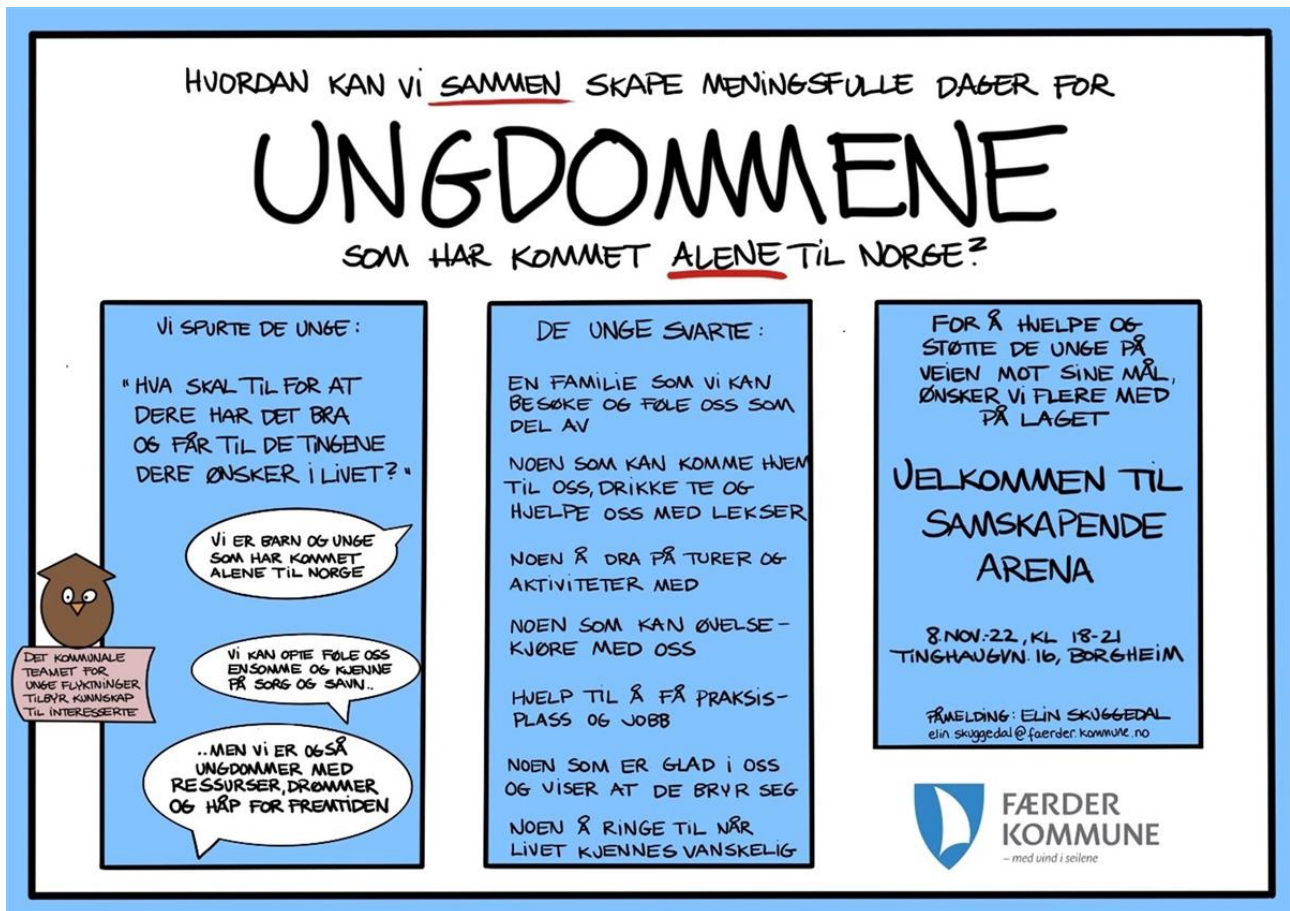 HVORDAN KAN Vi SAMMEN SKAPE MENiNGSFULLE DAGER FOR
UNGDOMMENE
SOM HAR KOMMET ALENE TiL NORGE?
Vi SPURTE DE UNGE:
"HVA SKAL TiL FOR AT
DERE HAR DET BRA
OG FÅR TiL DE TiNGENE
DERE ØNSKER i LiVET?"
Vi ER BARN OG UNGE
SOM HAR KOMMET
ALENE TiL NORGE
Vi KAN OFTE FØLE OSS
ENSOMME OG KJENNE
PÅ SORG OG SAVN..
..MEN Vi ER OGSÅ
UNGDOMMER MED
RESSURSER, DRØMMER
OG HÅP FOR FREMTiDEN
DET KOMMUNALE
TEAMET FOR
UNGE FLYKTNiNGER
TiLBYR KUNNSKAP
TiL iNTERESSERTE
DE UNGE SVARTE:
EN FAMiLiE SOM Vi KAN
BESØKE OG FØLE OSS SOM
DEL AV
NOEN SOM KAN KOMME HJEM
TiL OSS, DRiKKE TE OG
HJELPE OSS MED LEKSER
NOEN Å DRA PÅ TURER OG
AKTiViTETER MED
NOEN SOM KAN ØVELSE-
KJØRE MED OSS
HJELP TiL Å FÅ PRAKSiS-
PLASS OG JOBB
NOEN SOM ER GLAD i OSS
OG ViSER AT DE BRYR SEG
NOEN Å RiNGE TiL NÅR
LiVET KJENNES VANSKELiG
FOR Å HJELPE OG
STØTTE DE UNGE PÅ
VEiEN MOT SiNE MÅL,
ØNSKER Vi FLERE MED
PÅ LAGET
VELKOMMEN TiL
SAMSKAPENDE
ARENA
8.NOV.-22, KL 18-21
TiNGHAUGVN. 16, BORGHEiM
PÅMELDiNG: ELiN SKUGGEDAL
elin.skuggedal@faerder.kommune.no
FÆRDER
KOMMUNE
– med vind i seilene